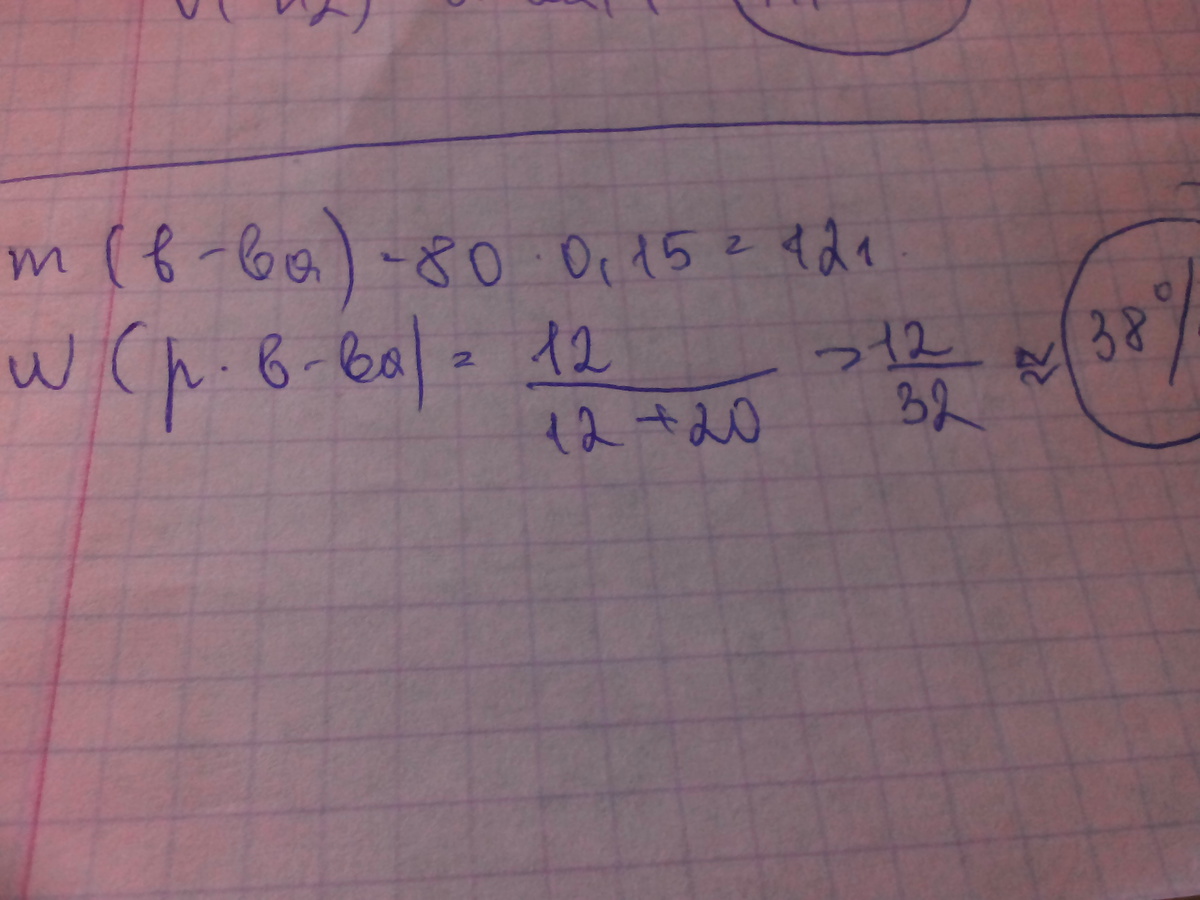 m (в-ва) = 80 · 0,15 = 12г.
w (р. в-ва) = 12 / 12 + 20 = 12 / 32 ≈ 38%